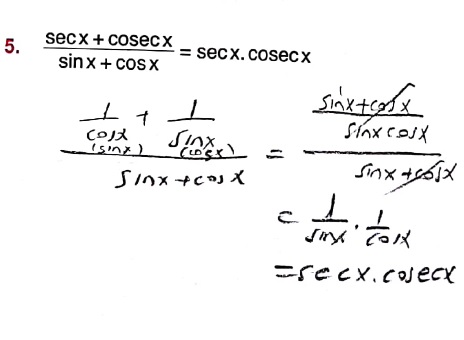 5. secx + cosecx / sinx + cosx = secx. cosecx
1/cosx (sinx) + 1/sinx (cosx) / sinx + cosx = sinx + cosx / sinx cosx / sinx + cosx
= 1/sinx . 1/cosx
= secx. cosecx